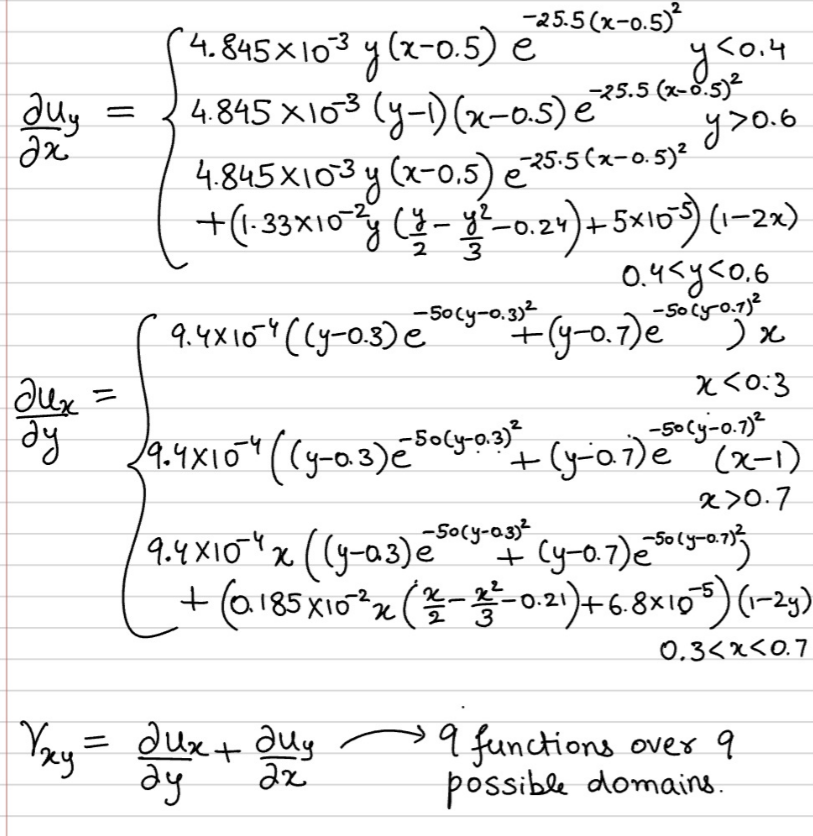 4.845×10⁻³ y(x-0.5) e^{-25.5(x-0.5)²} y<0.4
∂u_y/∂x = { 4.845×10⁻³ (y-1)(x-0.5) e^{-25.5(x-0.5)²} y>0.6
4.845×10⁻³ y(x-0.5) e^{-25.5(x-0.5)²}
+(1.33×10⁻² y (y/2 - y²/3 - 0.24) + 5×10⁻⁵) (1-2x)
0.4<y<0.6
9.4×10⁻⁴ ((y-0.3) e^{-50(y-0.3)²} + (y-0.7) e^{-50(y-0.7)²}) x
x<0.3
∂u_x/∂y = {
9.4×10⁻⁴ ((y-0.3) e^{-50(y-0.3)²} + (y-0.7) e^{-50(y-0.7)²} (x-1)
x>0.7
9.4×10⁻⁴ x ((y-0.3) e^{-50(y-0.3)²} + (y-0.7) e^{-50(y-0.7)²})
+ (0.185×10⁻² x (x/2 - x²/3 - 0.21) + 6.8×10⁻⁵) (1-2y)
0.3<x<0.7
γ_xy = ∂u_x/∂y + ∂u_y/∂x → 9 functions over 9
possible domains.